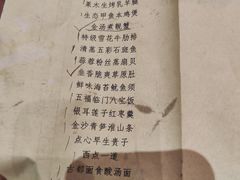 果木生烤乳羊腿
生态甲鱼本鸡煲
金汤煮靓蟹
特级雪花牛肋排
清蒸五彩石斑鱼
蒜蓉粉丝蒸扇贝
鱼香脆爽草原肚
鲜味海苔鱿鱼须
五福临门八宝饭
银耳莲子红枣羹
金沙青笋淮山条
点心早生贵子
西点一道
古都面食酸汤面